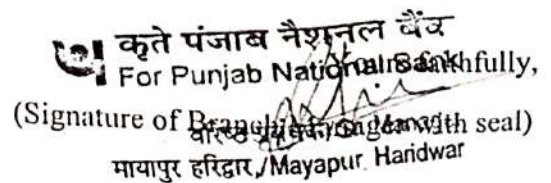 कृते पंजाब नैशनल बैंक
For Punjab National Bank
faithfully,
(Signature of Branch Manager with seal)
वरिष्ठ प्रबन्धक/Sr. Manager
मायापुर हरिद्वार/Mayapur, Haridwar